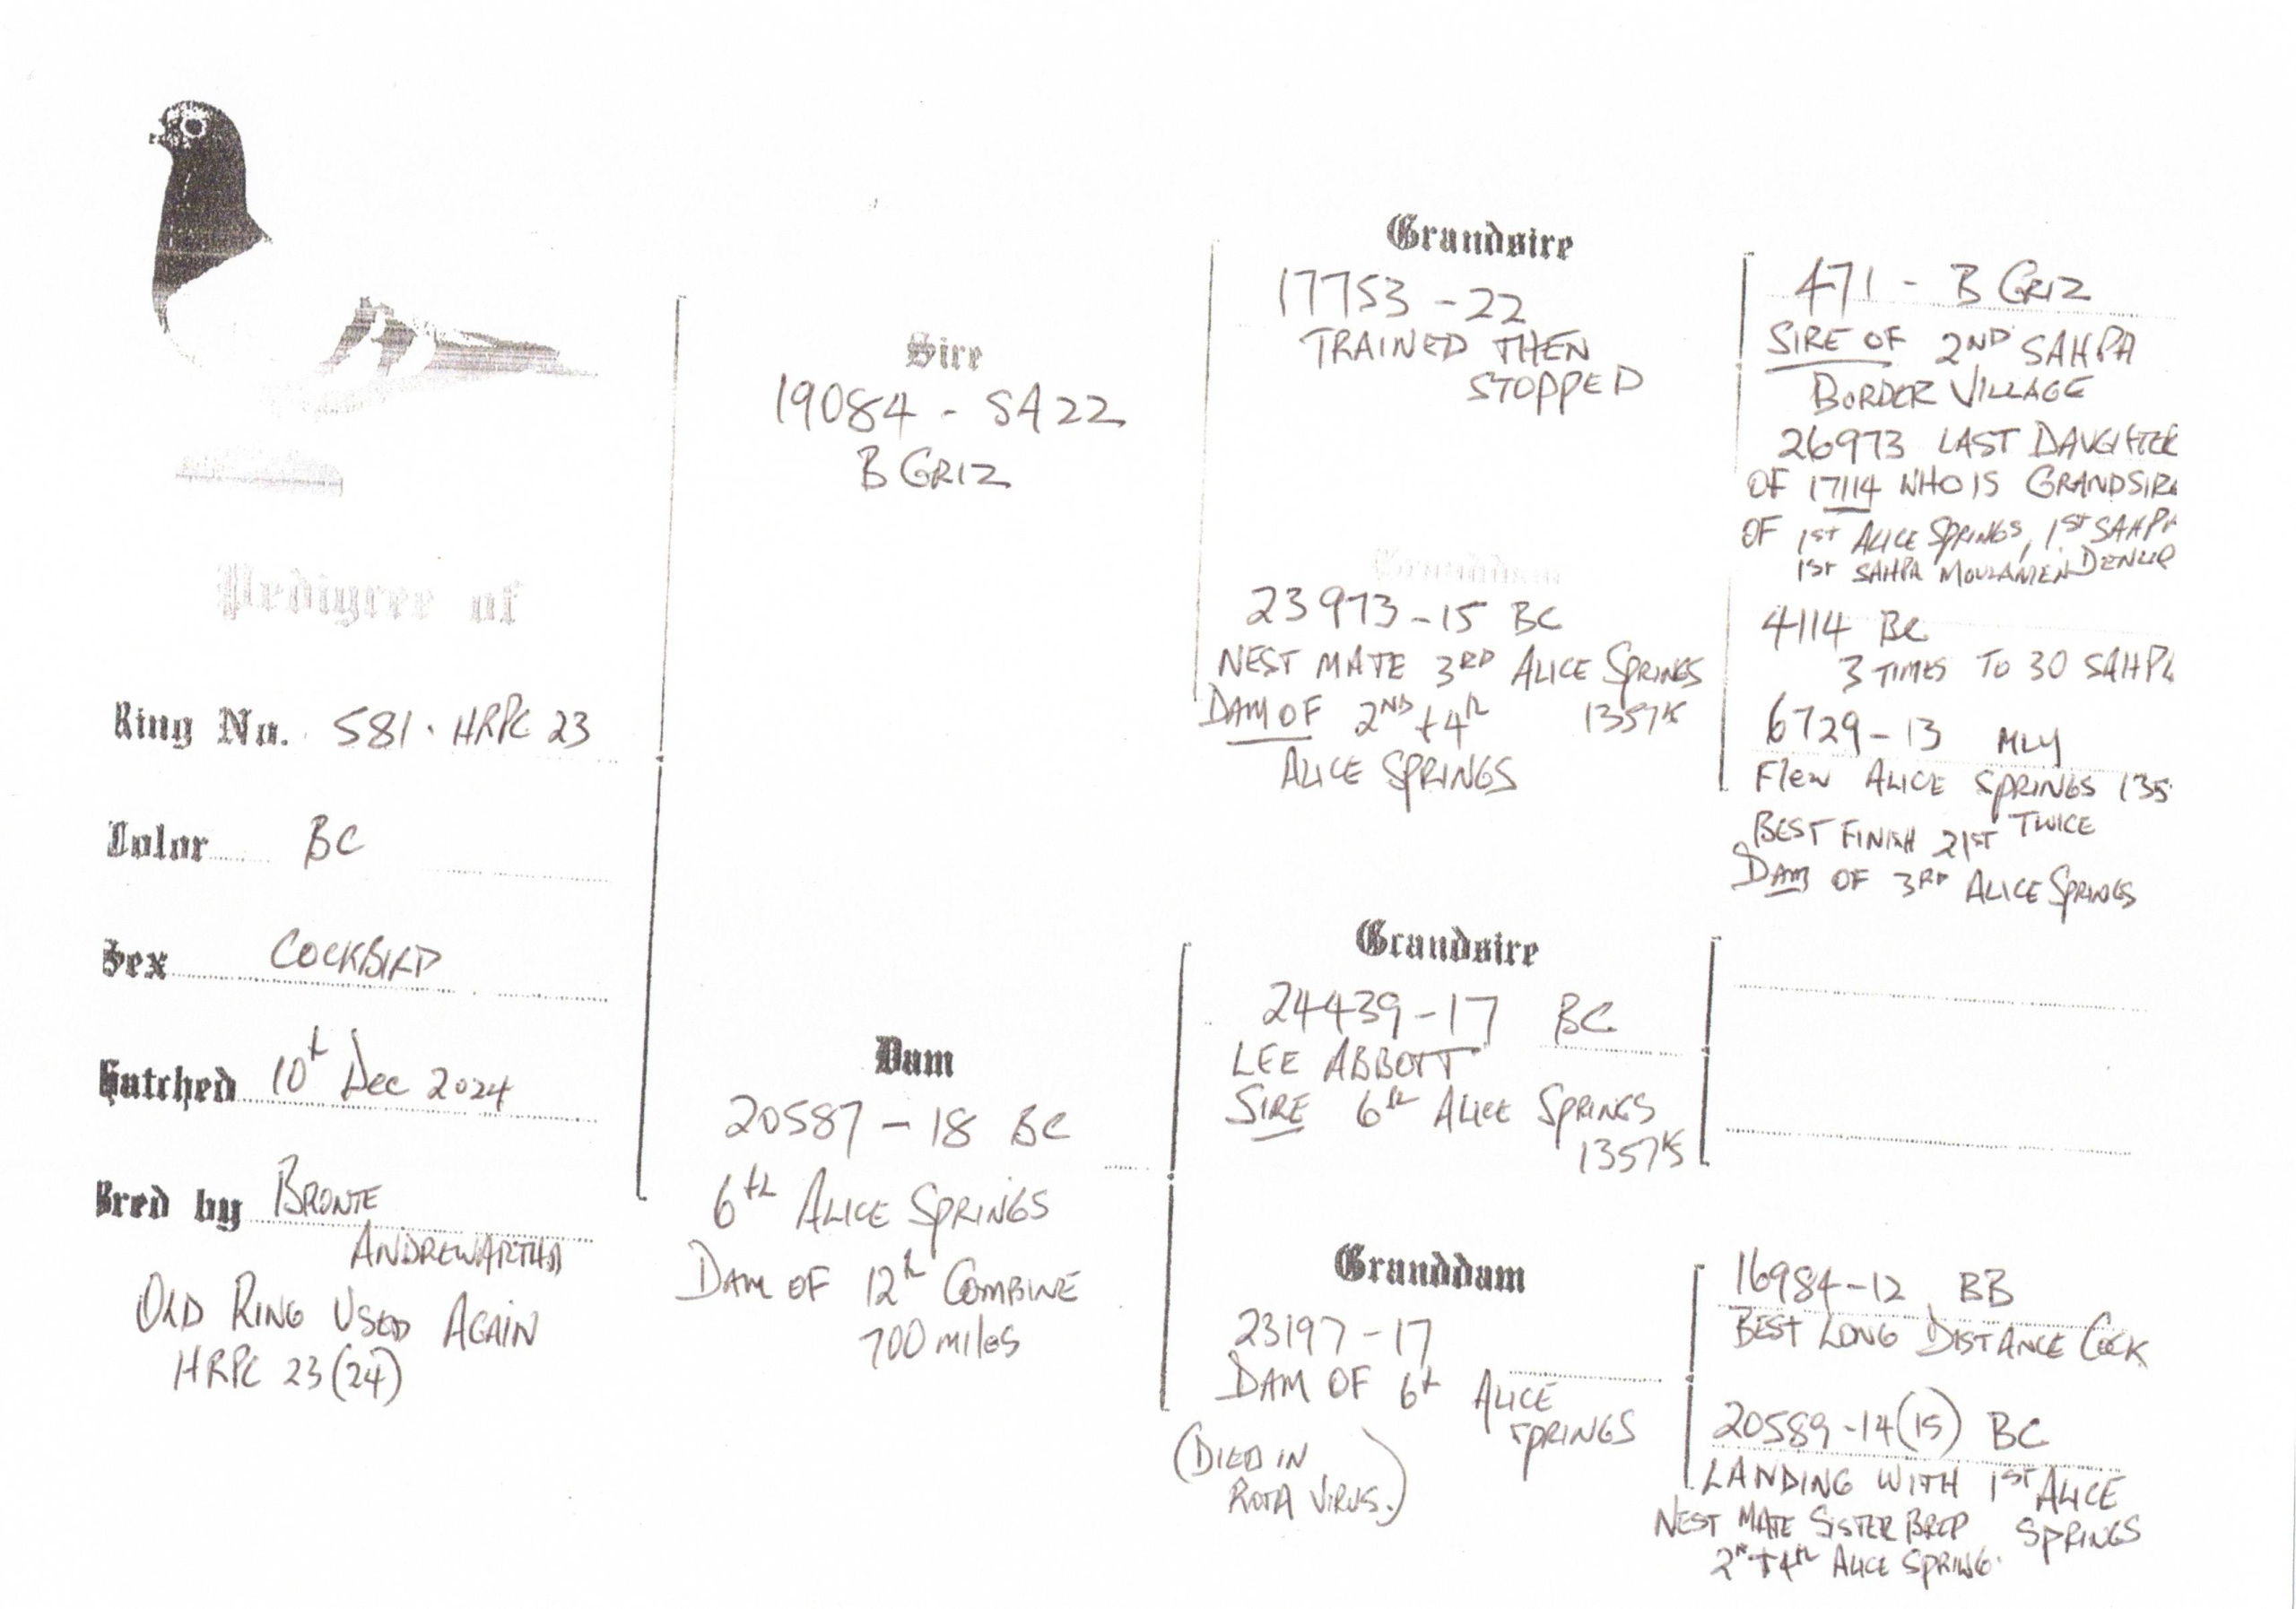 Pedigree of
Ring No. 581 · HRPC 23
Color BC
Sex COCKBIRD
Hatched 10th Dec 2024
Bred by BRONTE
ANDREWARTHA
OLD RING USED AGAIN
HRPC 23 (24)
Sire
19084 - SA 22
B GRIZ
Dam
20587 - 18 BC
6th ALICE SPRINGS
DAM OF 12th COMBINE
700 miles
Grandsire
17753 - 22
TRAINED THEN
STOPPED
Granddam
23973 - 15 BC
NEST MATE 3RD ALICE SPRINGS
DAM OF 2ND + 4th 1357K
ALICE SPRINGS
Grandsire
24439 - 17 BC
LEE ABBOTT
SIRE 6th ALICE SPRINGS
1357K
Granddam
23197 - 17
DAM OF 6th ALICE
SPRINGS
(DIED IN
ROTA VIRUS.)
471 - B GRIZ
SIRE OF 2ND SAHPA
BORDER VILLAGE
26973 LAST DAUGHTER
OF 17114 WHO IS GRANDSIRE
OF 1ST ALICE SPRINGS, 1ST SAHPA
1ST SAHPA
4114 BC
3 TIMES TO 30 SAHPA
6729 - 13 MLY
Flew ALICE SPRINGS 135
BEST FINISH 21ST TWICE
DAM OF 3RD ALICE SPRINGS
16984 - 12 BB
BEST LONG DISTANCE COCK
20589 - 14 (15) BC
LANDING WITH 1ST ALICE
SPRINGS
NEST MATE SISTER BRED
2nd + 4th ALICE SPRING.